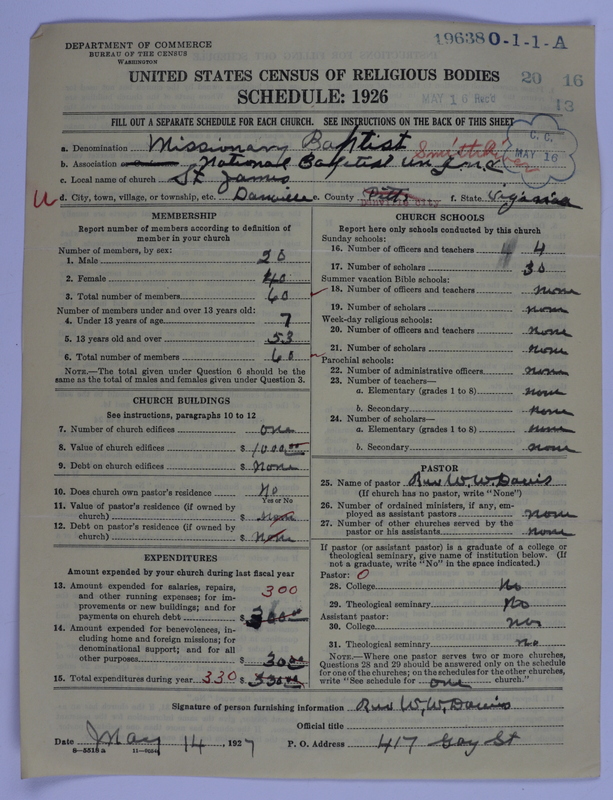 DEPARTMENT OF COMMERCE
BUREAU OF THE CENSUS
WASHINGTON
196380-1-1-A
UNITED STATES CENSUS OF RELIGIOUS BODIES
SCHEDULE: 1926
20 16
13
MAY 16 Rec'd
FILL OUT A SEPARATE SCHEDULE FOR EACH CHURCH. SEE INSTRUCTIONS ON THE BACK OF THIS SHEET
C. C.
MAY 16
a. Denomination Missionary Baptist
b. Association National Baptist
c. Local name of church St James
d. City, town, village, or township, etc. Danville e. County Pitts f. State Virginia
MEMBERSHIP
Report number of members according to definition of
member in your church
Number of members, by sex:
1. Male 20
2. Female 40
3. Total number of members 60
Number of members under and over 13 years old:
4. Under 13 years of age 7
5. 13 years old and over 53
6. Total number of members 60
NOTE.—The total given under Question 6 should be
same as the total of males and females given under Question 3.
CHURCH BUILDINGS
See instructions, paragraphs 10 to 12
7. Number of church edifices one
8. Value of church edifices $ 1000.00
9. Debt on church edifices $ None
10. Does church own pastor's residence No
Yes or No
11. Value of pastor's residence (if owned by
church) $ None
12. Debt on pastor's residence (if owned by
church) $ None
EXPENDITURES
Amount expended by your church during last fiscal year
13. Amount expended for salaries, repairs,
and other running expenses; for im-
provements or new buildings; and for
payments on church debt $ 300
14. Amount expended for benevolences, in-
cluding home and foreign missions; for
denominational support; and for all
other purposes $ 30.00
15. Total expenditures during year 330 $ 330.00
CHURCH SCHOOLS
Report here only schools conducted by this church
Sunday schools:
16. Number of officers and teachers 4
17. Number of scholars 30
Summer vacation Bible schools:
18. Number of officers and teachers none
19. Number of scholars none
Week-day religious schools:
20. Number of officers and teachers none
21. Number of scholars none
Parochial schools:
22. Number of administrative officers none
23. Number of teachers—
a. Elementary (grades 1 to 8) none
b. Secondary none
24. Number of scholars—
a. Elementary (grades 1 to 8) none
b. Secondary none
PASTOR
25. Name of pastor Rev W. W. Davis
(If church has no pastor, write "None")
26. Number of ordained ministers, if any, em-
ployed as assistant pastors none
27. Number of other churches served by the
pastor or his assistants none
If pastor (or assistant pastor) is a graduate of a college or
theological seminary, give name of institution below. (If
not a graduate, write "No" in the space indicated.)
Pastor: 0
28. College No
29. Theological seminary No
Assistant pastor:
30. College no
31. Theological seminary no
NOTE.—Where one pastor serves two or more churches,
Questions 28 and 29 should be answered only on the schedule
for one of the churches; on the schedules for the other churches,
write "See schedule for one church."
Signature of person furnishing information Rev W. W. Davis
Official title
Date May 14, 1927 P. O. Address 417 Gay St
8—5518 a